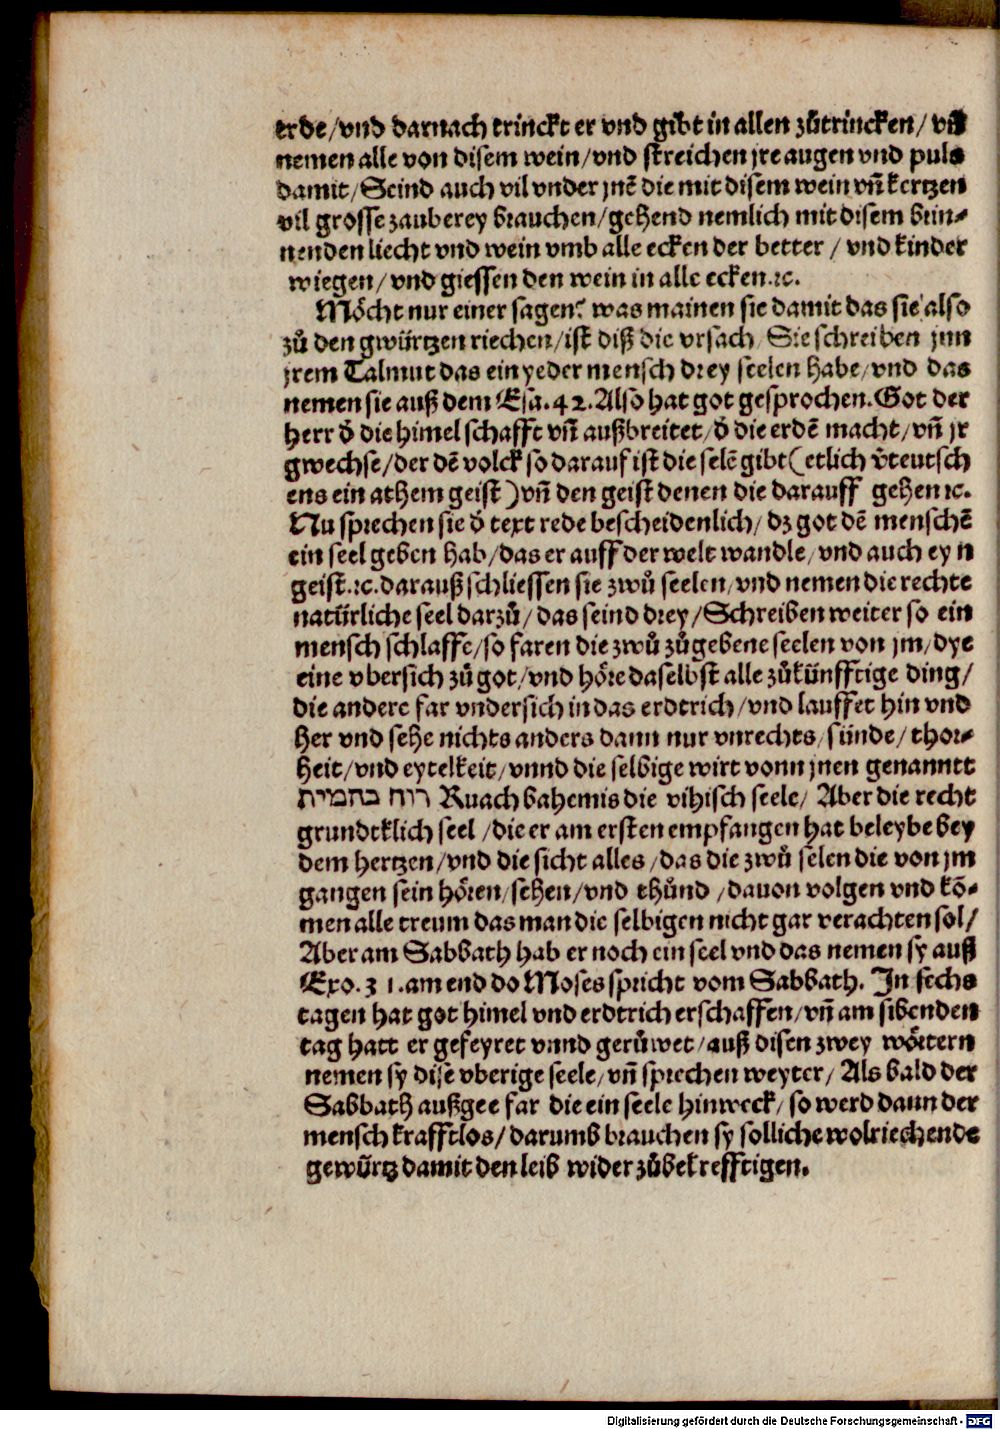 erde/vnd darnach trinckt er vnd gibt in allen zůtrincken/ vñ
nemen alle von disem wein/vnd streichen jre augen vnd puls
damit/Seind auch vil vnder jnẽ die mit disem wein vñ kertzen
vil grosse zauberey brauchen/gehend nemlich mit disem brin⸗
nenden liecht vnd wein vmb alle ecken der better / vnd kinder
wiegen/vnd giessen den wein in alle ecken.ꝛc.
Möcht nur einer sagen? was mainen sie damit das sie also
zů den gwürtzen riechen/ist diß die vrsach/Sie schreiben jnn
jrem Talmut das ein yeder mensch drey seelen habe/vnd das
nemen sie auß dem Esa.42.Also hat got gesprochen.Got der
herr d̾ die himel schafft vñ außbreitet/d̾ die erdẽ macht/vñ jr
gwechse/der dẽ volck so darauf ist die selẽ gibt(etlich v̾teutsch
ens ein athem geist)vñ den geist denen die darauff gehen ꝛc.
Nu sprechen sie d̾ text rede bescheidenlich/dz got dẽ menschẽ
ein seel geben hab/das er auff der welt wandle/vnd auch eyn
geist.ꝛc.darauß schliessen sie zwů seelen/vnd nemen die rechte
natürliche seel darzů/das seind drey/Schreiben weiter so ein
mensch schlaffe/so faren die zwů zůgebene seelen von jm/dye
eine vbersich zů got/vnd höre daselbst alle zůkünfftige ding/
die andere far vndersich in das erdtrich/vnd lauffet hin vnd
her vnd sehe nichts anders dann nur vnrechts/sünde/thor⸗
heit/vnd eytelkeit/vnnd die selbige wirt vonn jnen genanntt
רוח בהמית Ruach bahemis die vihisch seele/ Aber die recht
grundtklich seel /die er am ersten empfangen hat beleybe bey
dem hertzen/vnd die sicht alles/das die zwů selen die von jm
gangen sein hören/sehen/vnd thůnd /dauon volgen vnd kõ⸗
men alle treum das man die selbigen nicht gar verachten sol/
Aber am Sabbath hab er noch ein seel vnd das nemen sy auß
Exo.31.am end do Moses spricht vom Sabbath. In sechs
tagen hat got himel vnd erdtrich erschaffen/vñ am sibenden
tag hatt er gefeyret vnnd gerůwet/auß disen zwey wörtern
nemen sy dise vberige seele/vñ sprechen weyter/ Als bald der
Sabbath außgee far die ein seele hinweck/so werd dann der
mensch krafftlos/darumb brauchen sy solliche wolriechende
gewürtz damit den leib wider zůbekrefftigen.
Digitalisierung gefördert durch die Deutsche Forschungsgemeinschaft - DFG